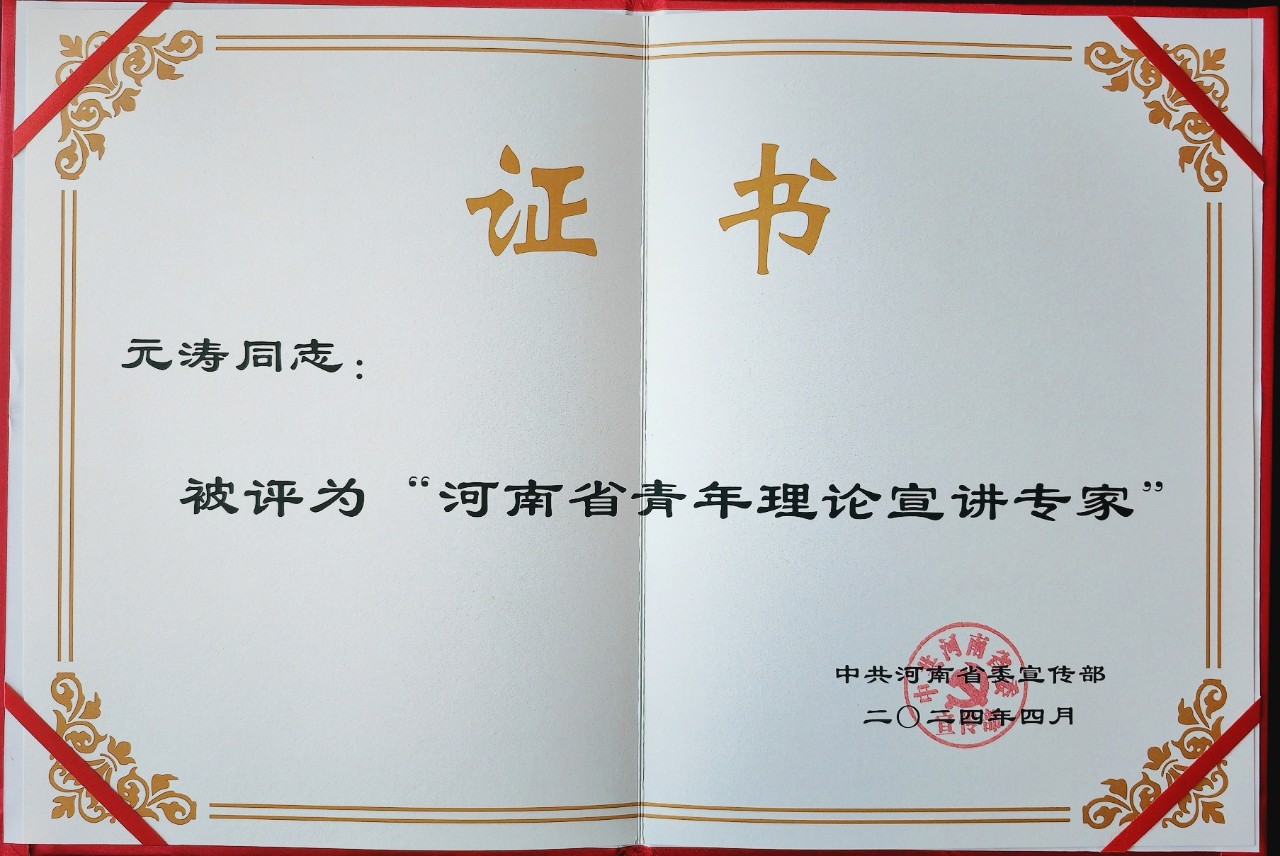 证书
元涛同志：
被评为“河南省青年理论宣讲专家”
中共河南省委宣传部
二〇二四年四月
中共河南省委
宣传部